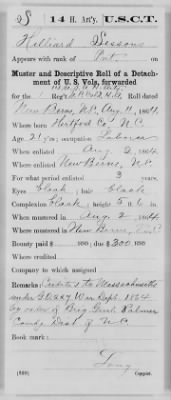 S 14 H. Art'y. U.S.C.T.
Hilliard Sessons
Appears with rank of Pvt. on
Muster and Descriptive Roll of a Detachment
of U. S. Vols. forwarded
for the 1 Reg't Roll dated
New Berne, N.C. Aug 11, 1864
Where born Hertford Co. N.C.
Age 21 y'rs; occupation Laborer
When enlisted Aug 2, 1864
Where enlisted New Berne, N.C.
For what period enlisted 3 years.
Eyes black; hair black
Complexion black; height 5 ft. 6 in.
When mustered in Aug 2, 1864
Where mustered in New Berne, N.C.
Bounty paid $ 100; due $ 300 100
Where credited
Company to which assigned
Remarks: Credited to Massachusetts
under G.O. 227 War Dept. 1864
by order of Brig. Genl. Palmer
Comdg. Dist of N.C.
Book mark:
Long
(339) Copyist.